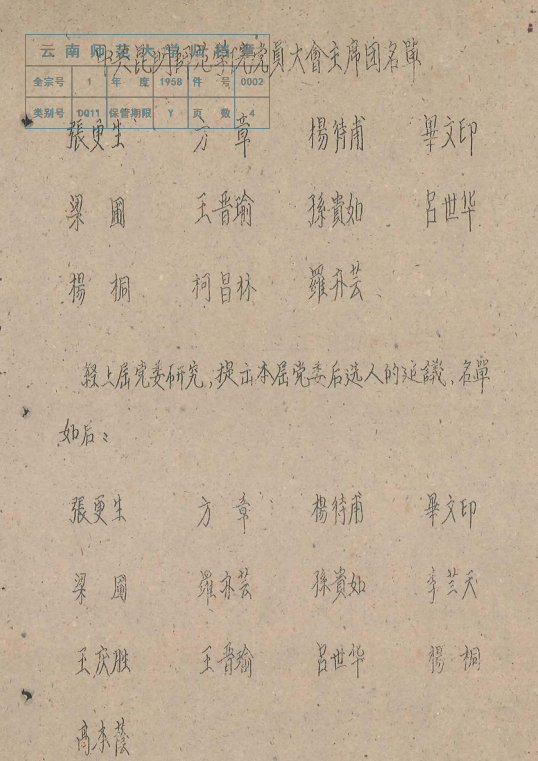 云南师范大学归档章
全宗号 1 年度 1958 件号 0002
类别号 0011 保管期限 Y 页数 4
中共昆明師范學院党員大會主席团名單
張更生 方章 楊待甫 畢文印
梁圃 王晋瑜 孫貴如 呂世华
楊桐 柯昌林 羅亦芸
經上屆党委研究,提出本屆党委后选人的建議,名單
如后:
張更生 方章 楊待甫 畢文印
梁圃 羅亦芸 孫貴如 李芸天
王庆胜 王晋瑜 呂世华 楊桐
高本蔭